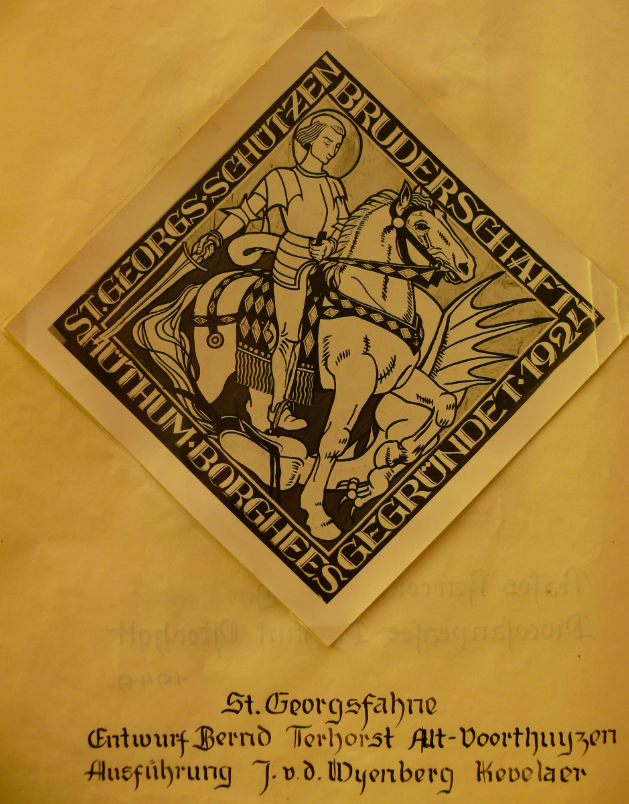 ST. GEORGS·SCHÜTZEN
BRUDERSCHAFT
HÜTHUM·BORGHEES
GEGRÜNDET·1924
St. Georgsfahne
Entwurf Bernd Terhorst Alt-Voorthuyzen
Ausführung J. v. d. Wyenberg Kevelaer